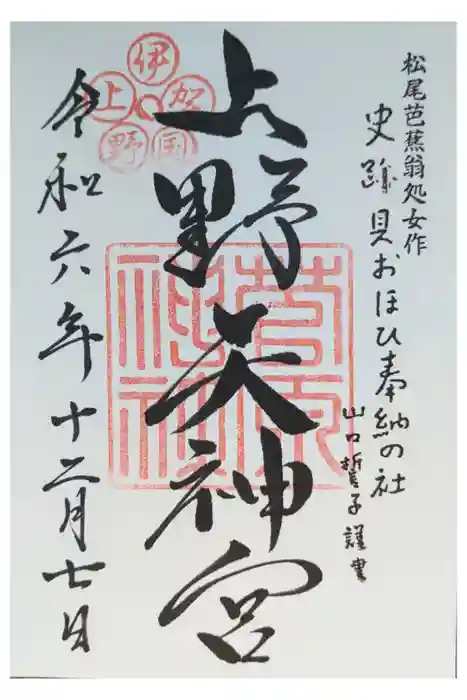 松尾芭蕉翁処女作
史跡貝おほひ奉納の社
山口誓子謹書
上野天神宮
伊賀国
上野
菅原
神社
令和六年十二月七日